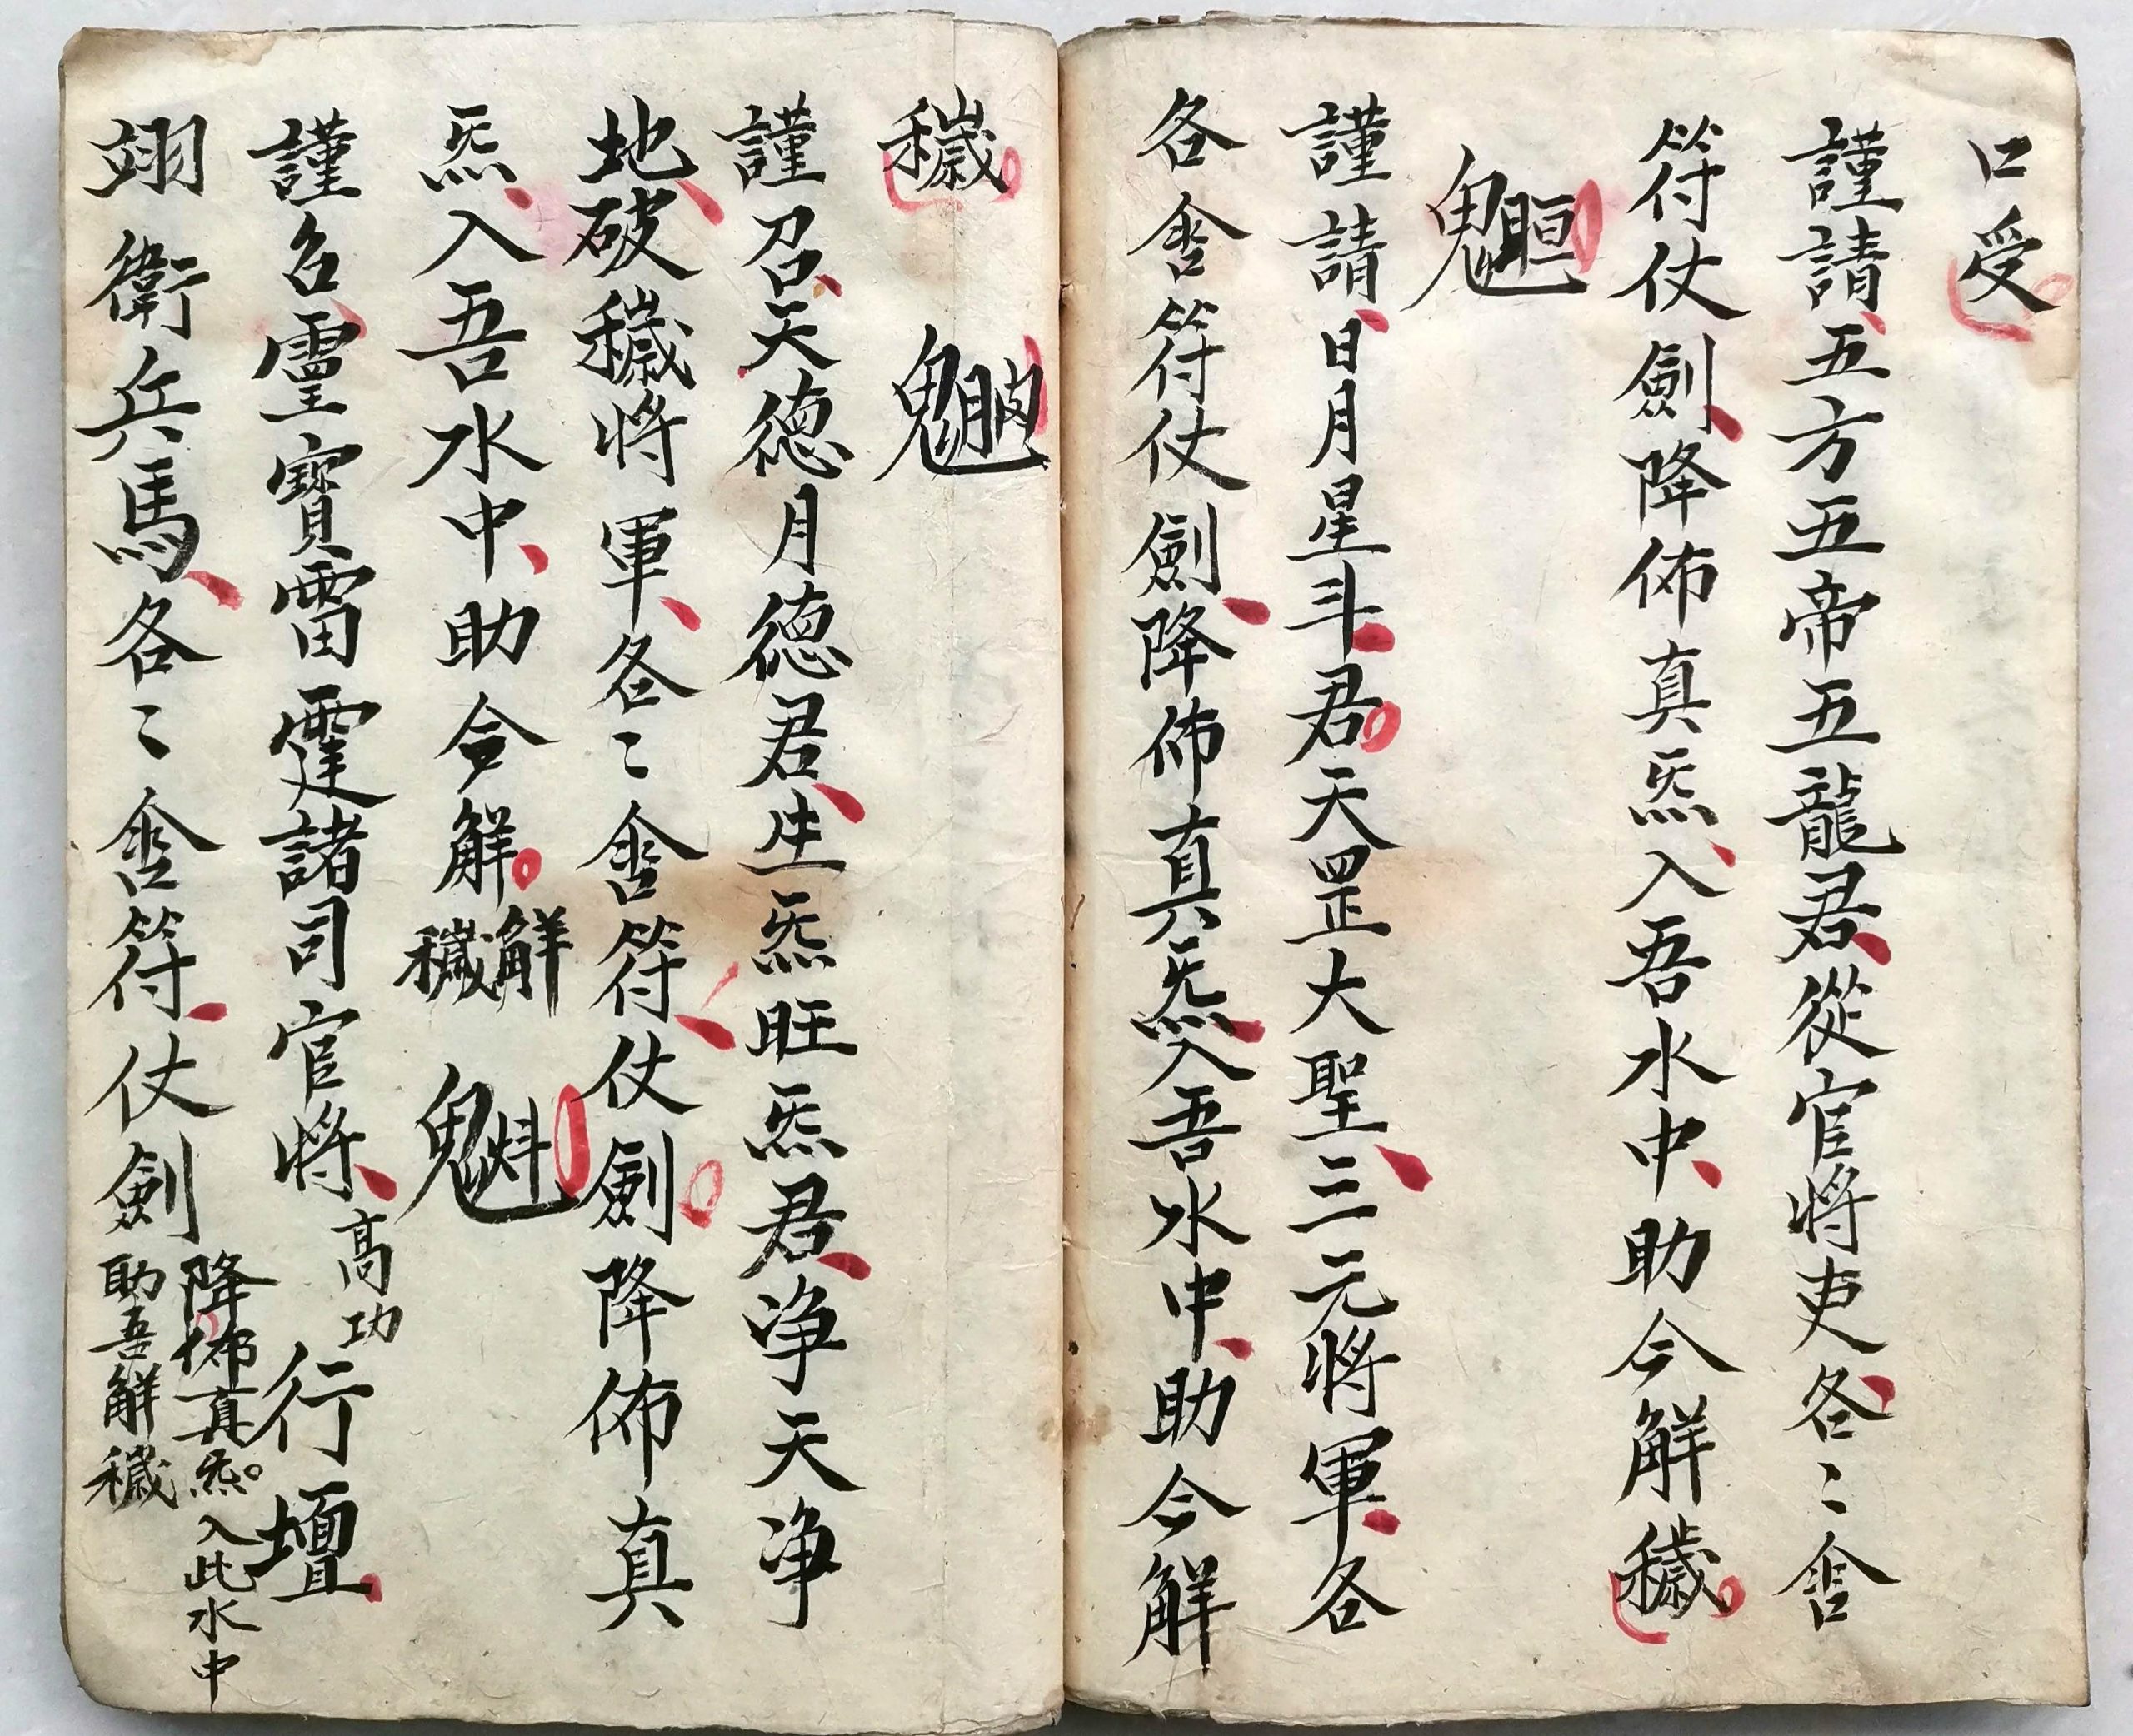 口受
謹請五方五帝五龍君從官將吏各〻含
符仗劍降佈真炁入吾水中助今解穢
謹請日月星斗君天罡大聖三元將軍各
各含符仗劍降佈真炁入吾水中助今解
穢
謹召天德月德君生炁旺炁君净天净
地破穢將軍各〻含符仗劍降佈真
炁入吾水中助今解
解
穢
謹召靈寶雷霆諸司官將高功行壇
翊衛兵馬各〻含符仗劍
降佈真炁入此水中
助吾解穢